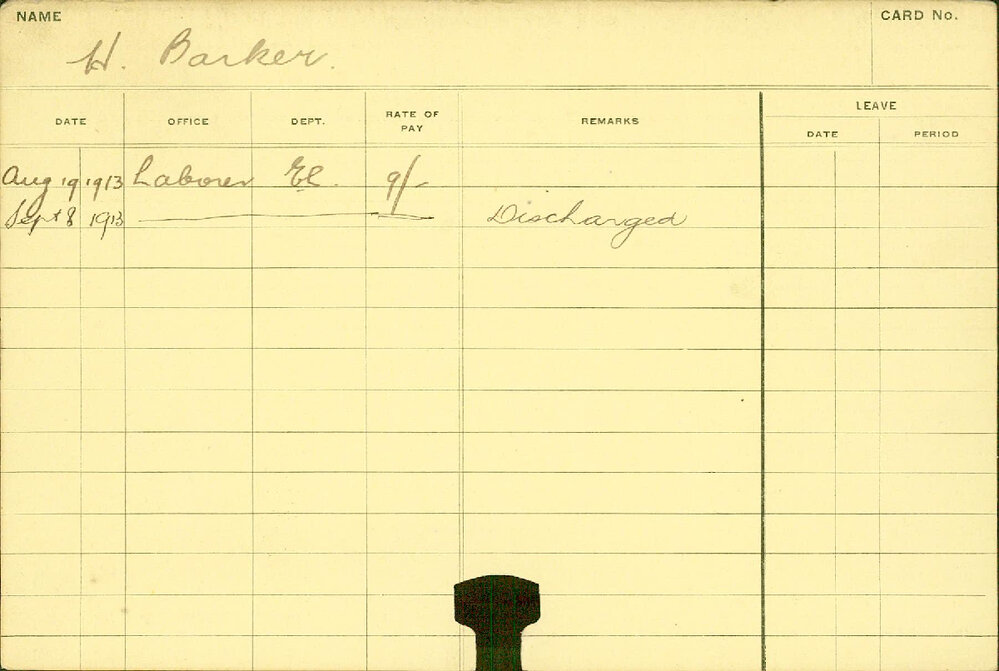 NAME
CARD No.
H. Barker.
DATE OFFICE DEPT. RATE OF PAY REMARKS LEAVE
DATE PERIOD
Aug 19 1913 Laborer El. 9/-
Sept 8 1913 Discharged